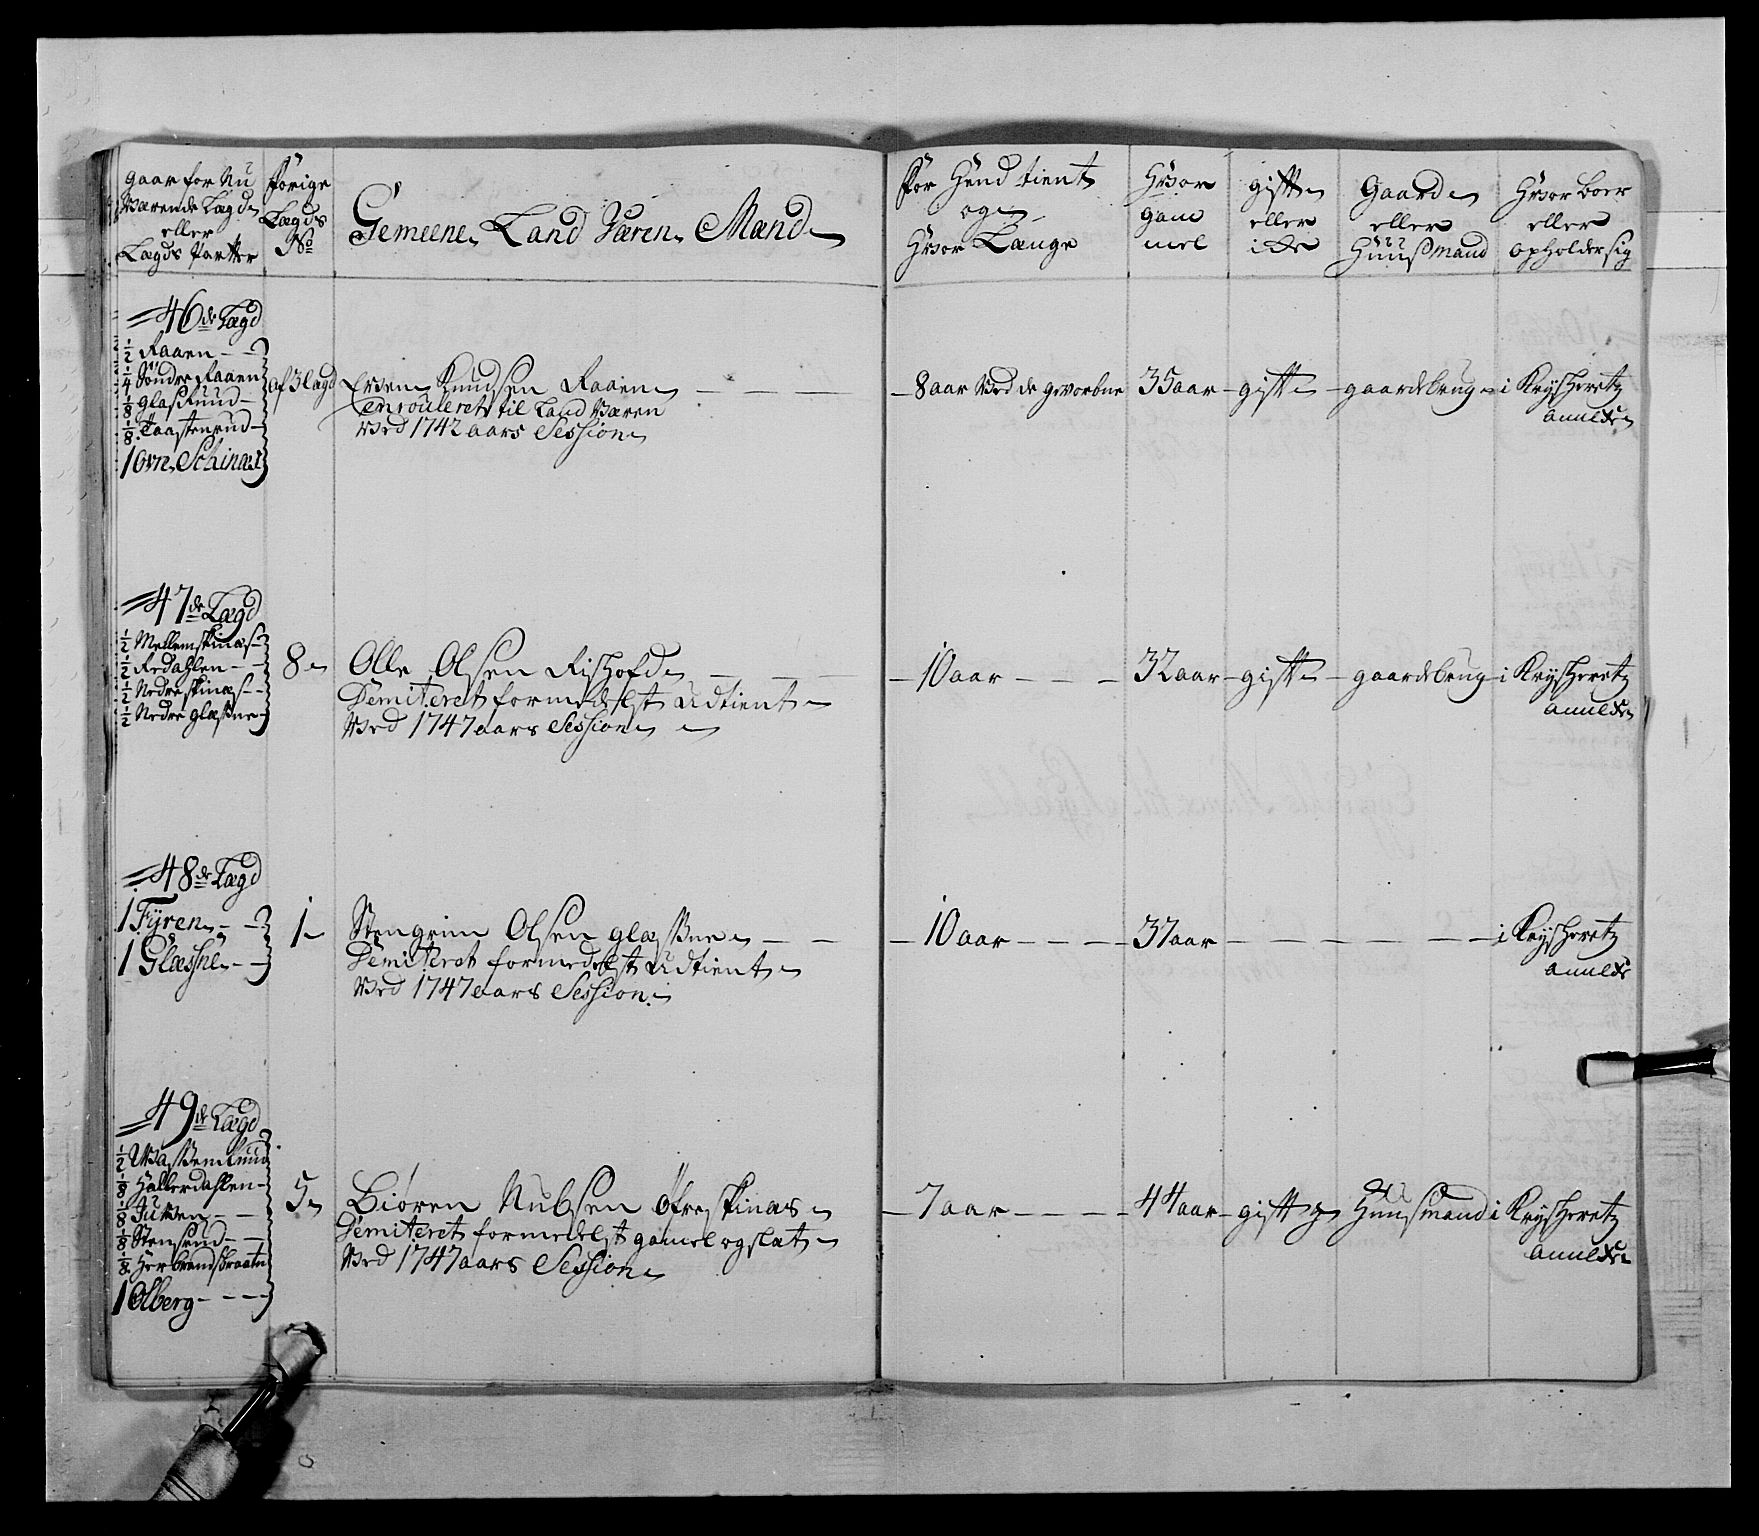 gaar for Nu
Værende Lægd
eller
Lægds Partter
Forige
Lægds
No
Gemeene Land Væren Mænd
For Hend tient
og
Hvor Længe
Hvor
gam
mel
gift
eller
icke
Gaard
eller
Huusmand
Hvor boer
eller
opholder sig
46de Lægd
1/2 Raaen
1/4 Söndre Raaen
1/8 Glasruud
1/8 Taastenrud
1 ovn. Schinæs
af 3 lægd
Even Knudsen Raaen
Enrouleret til Land Væren
Ved 1742 aars Session
8 aar Ved de gevorbne
35 aar
gift
gaardebrug
i Krysherretz
annex
47de Lægd
1/2 Mellemskinæs
1/2 Redahlen
1/2 Nedre skinæs
1/2 Nedre Glæsne
8
Olle Olsen Rishofd
Demiteret formedelst udtient
Ved 1747 aars Session
10 aar
32 aar
gift
gaardebrug
i Krysherretz
annex
48de Lægd
1 Fyren
1 Glæsne
1
Stengrim Olsen Glæsne
Demiteret formedelst udtient
Ved 1747 aars Session
10 aar
37 aar
i Krysherretz
annex
49de Lægd
1/2
1/8 Hallerdahlen
1/8 Juven
1/8 Stensrud
1/8 Herbrandsbraaten
1 Olberg
5
Biören Nubsen Öfreskinæs
Demiteret formedelst gamel og slat
Ved 1747 aars Session
7 aar
44 aar
gift
Huusmand
i Krysherretz
annex